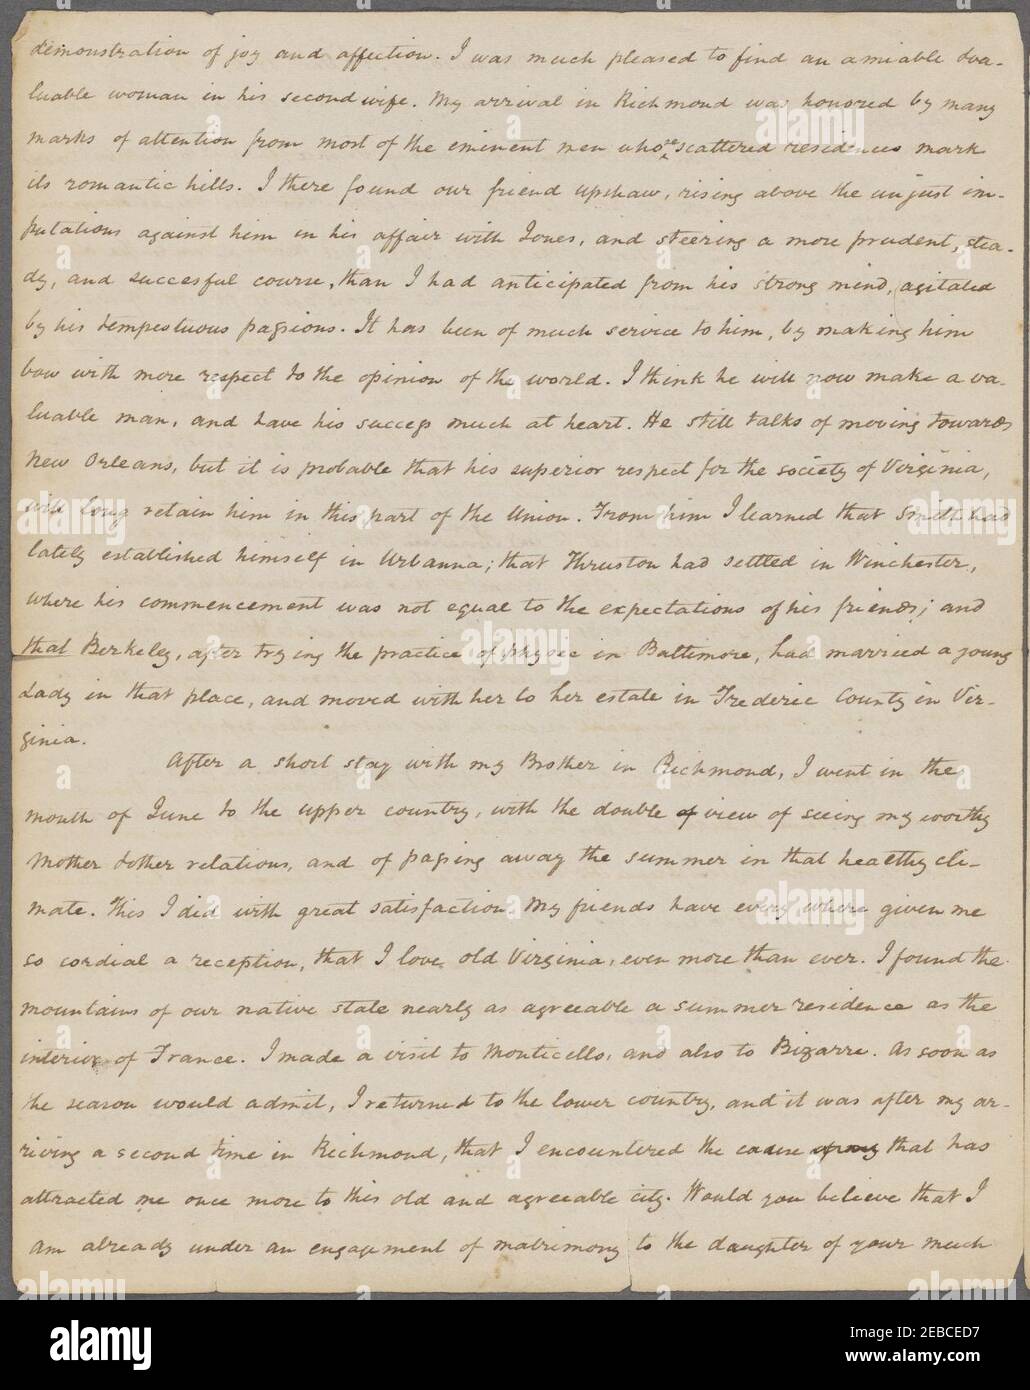 demonstration of joy and affection. I was much pleased to find an amiable & va-
luable woman in his second wife. My arrival in Richmond was honored by many
marks of attention from most of the eminent men whose scattered residences mark
its romantic hills. I there found our friend Upshaw, rising above the unjust im-
putations against him in his affair with Jones, and steering a more prudent, stea-
dy, and succesful course, than I had anticipated from his strong mind, agitated
by his tempestuous passions. It has been of much service to him, by making him
bow with more respect to the opinion of the world. I think he will now make a va-
luable man, and have his success much at heart. He still talks of moving towards
New Orleans, but it is probable that his superior respect for the society of Virginia,
will long retain him in this part of the Union. From him I learned that Smith had
lately established himself in Urbanna; that Thruston had settled in Winchester,
where his commencement was not equal to the expectations of his friends; and
that Berkeley, after trying the practice of physic in Baltimore, had married a young
Lady in that place, and moved with her to her estate in Frederic County in Vir-
ginia.
After a short stay with my Brother in Richmond, I went in the
month of June to the upper country, with the double of view of seeing my worthy
Mother & other relations, and of passing away the summer in that healthy cli-
mate. This I did with great satisfaction. My friends have every where given me
so cordial a reception, that I love old Virginia, even more than ever. I found the
mountains of our native state nearly as agreeable a summer residence as the
interior of France. I made a visit to Monticello, and also to Bizarre. As soon as
the season would admit, I returned to the lower country, and it was after my ar-
riving a second time in Richmond, that I encountered the cause that has
attracted me once more to this old and agreeable city. Would you believe that I
am already under an engagement of matrimony to the daughter of your much
alamy
Image ID: 2EBCED7
www.alamy.com